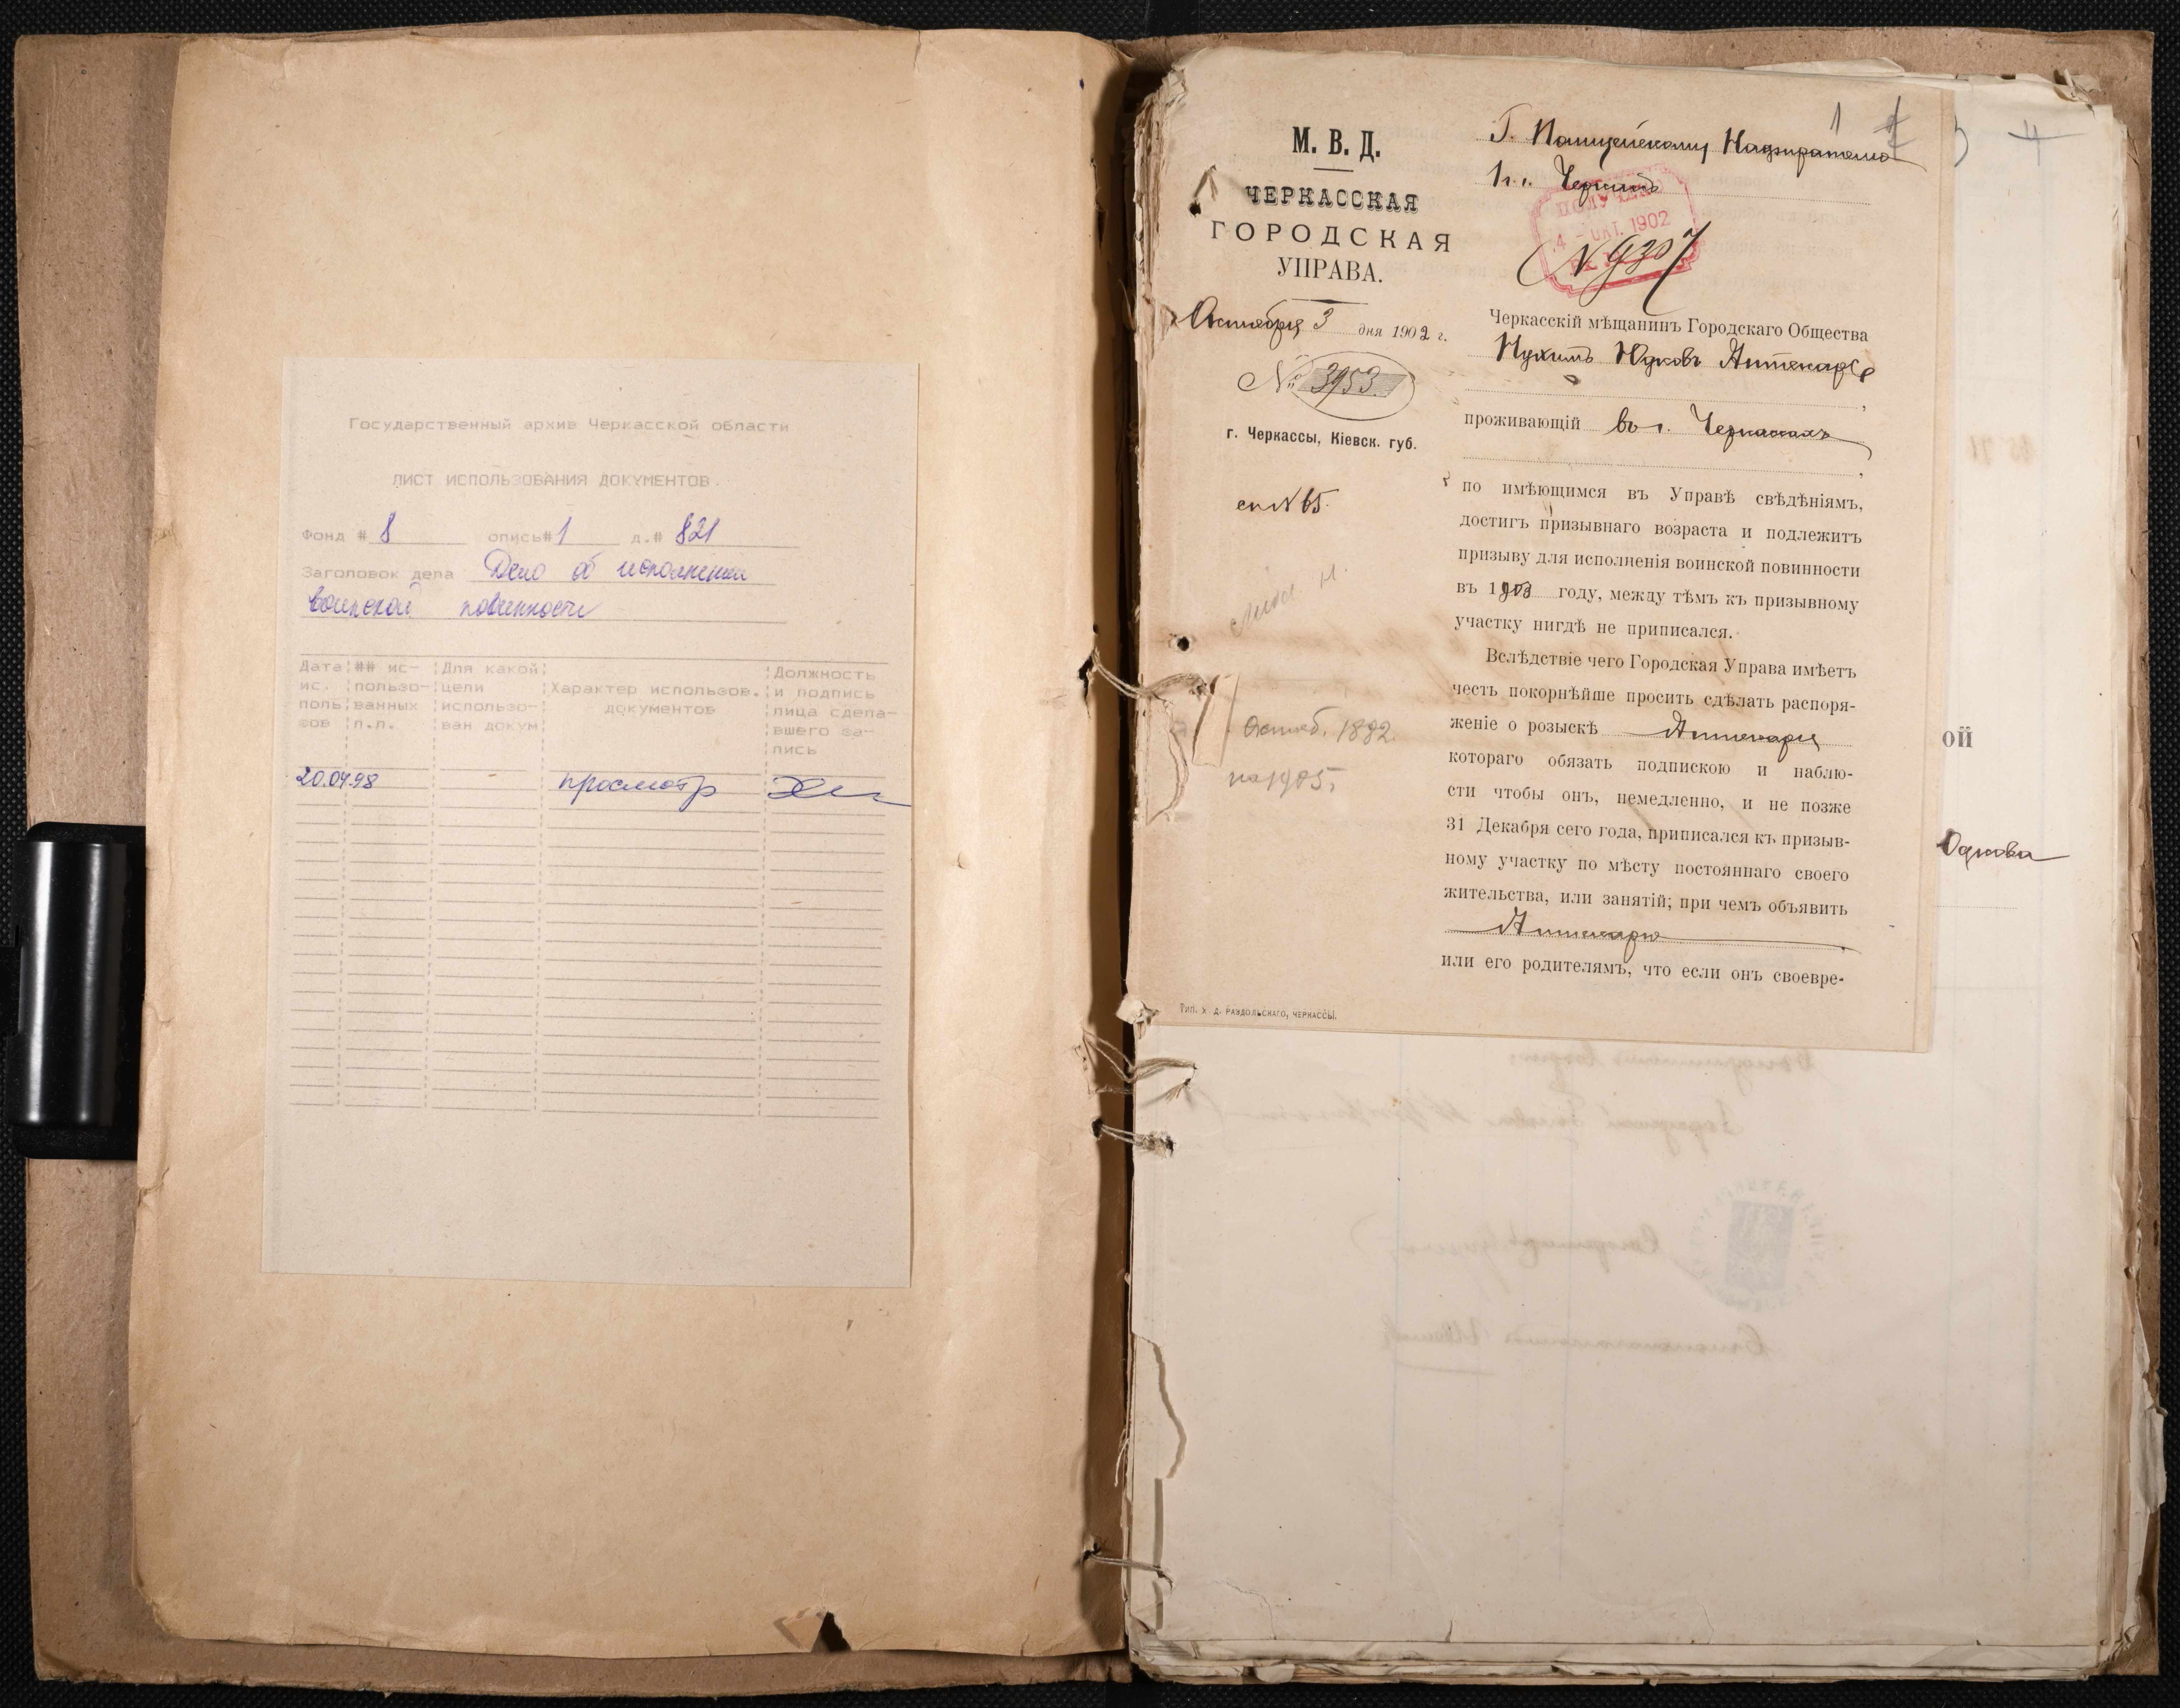 Государственный архив Черкасской области
ЛИСТ ИСПОЛЬЗОВАНИЯ ДОКУМЕНТОВ.
Фонд # 8 опись# 1 д.# 821
Заголовок дела Дело об исполнении
воинской повинности
Дата ис. поль зов
## ис- пользо- ванных п.л.
Для какой цели использо- ван докум
Характер использов. документов
Должность и подпись лица сдела- вшего за- пись
20.04.98 - просмотр
1
4
М. В. Д.
ЧЕРКАССКАЯ
ГОРОДСКАЯ
УПРАВА.
Октября 3 дня 1902 г.
№ 3953
г. Черкассы, Кіевск. губ.
сп № 65.
Октяб. 1882.
на 1905,
Г. Полицейскому Надзирателю
1 г.
ПОЛУЧЕНО
4 - ОКТ. 1902
N 9307
Черкасскій мѣщанинъ Городскаго Общества
Нухимъ Юдковъ Аптекарь
,
проживающій въ г. Черкассахъ
,
по имѣющимся въ Управѣ свѣдѣніямъ,
достигъ призывнаго возраста и подлежитъ
призыву для исполненія воинской повинности
въ 1903 году, между тѣмъ къ призывному
участку нигдѣ не приписался.
Вслѣдствіе чего Городская Управа имѣетъ
честь покорнѣйше просить сдѣлать распоря-
женіе о розыскѣ Аптекаря
котораго обязать подпискою и наблю-
сти чтобы онъ, немедленно, и не позже
31 Декабря сего года, приписался къ призыв-
ному участку по мѣсту постояннаго своего
жительства, или занятій; при чемъ объявить
Аптекарю ,
или его родителямъ, что если онъ своевре-
Тип. Х. Д. РАЗДОЛЬСКАГО, ЧЕРКАССЫ.
ой